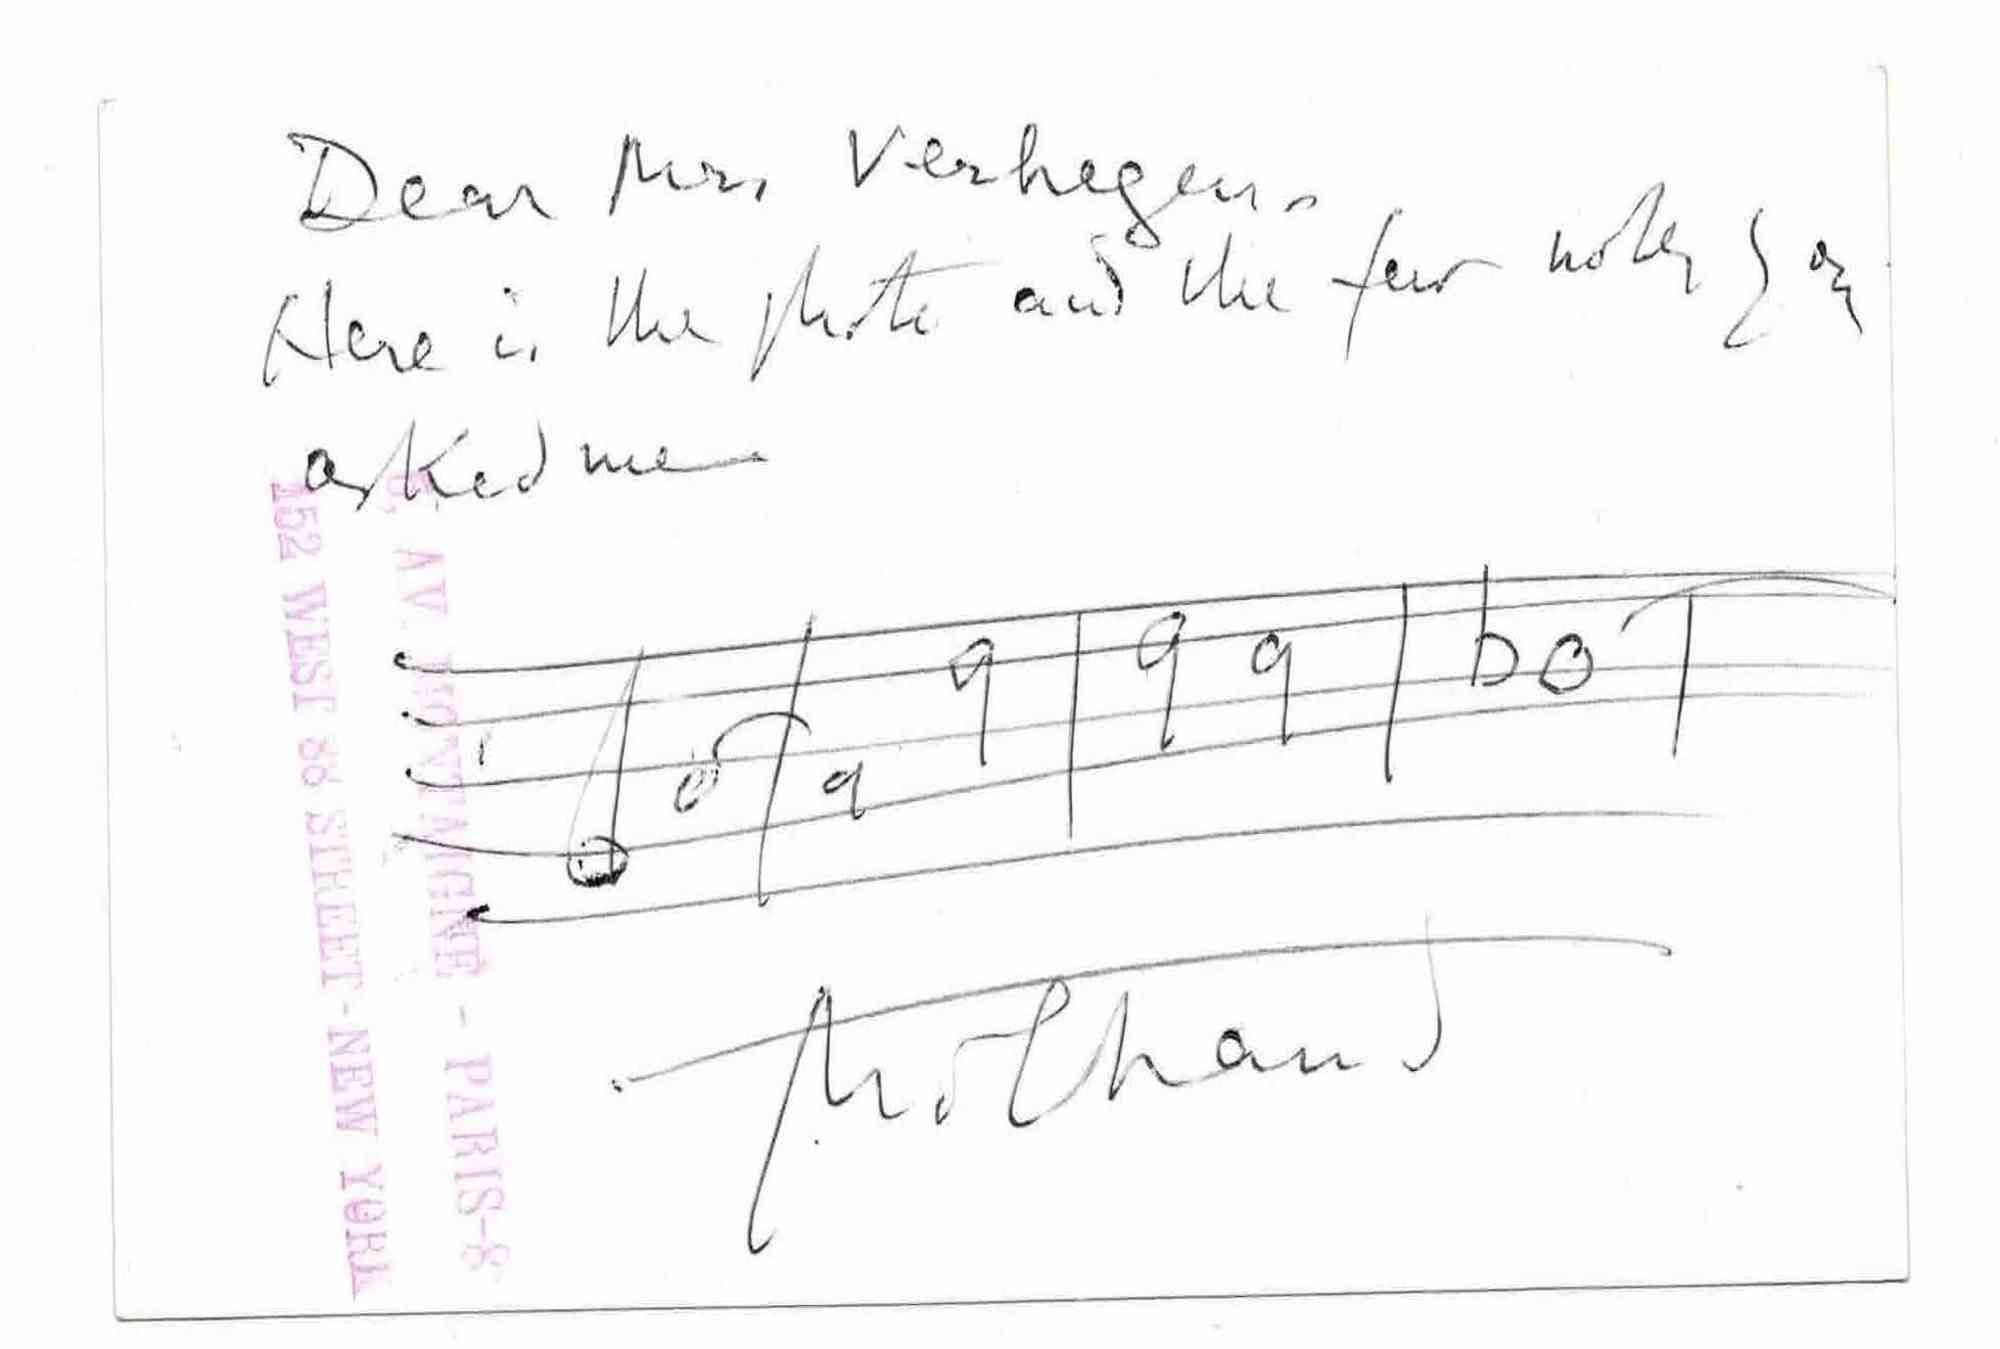 Dear Mrs. Verhegen.
Here is the photo and the few notes you
asked me
MrChand
AV. MONTAIGNE - PARIS-8
152 WEST 86 STREET - NEW YORK